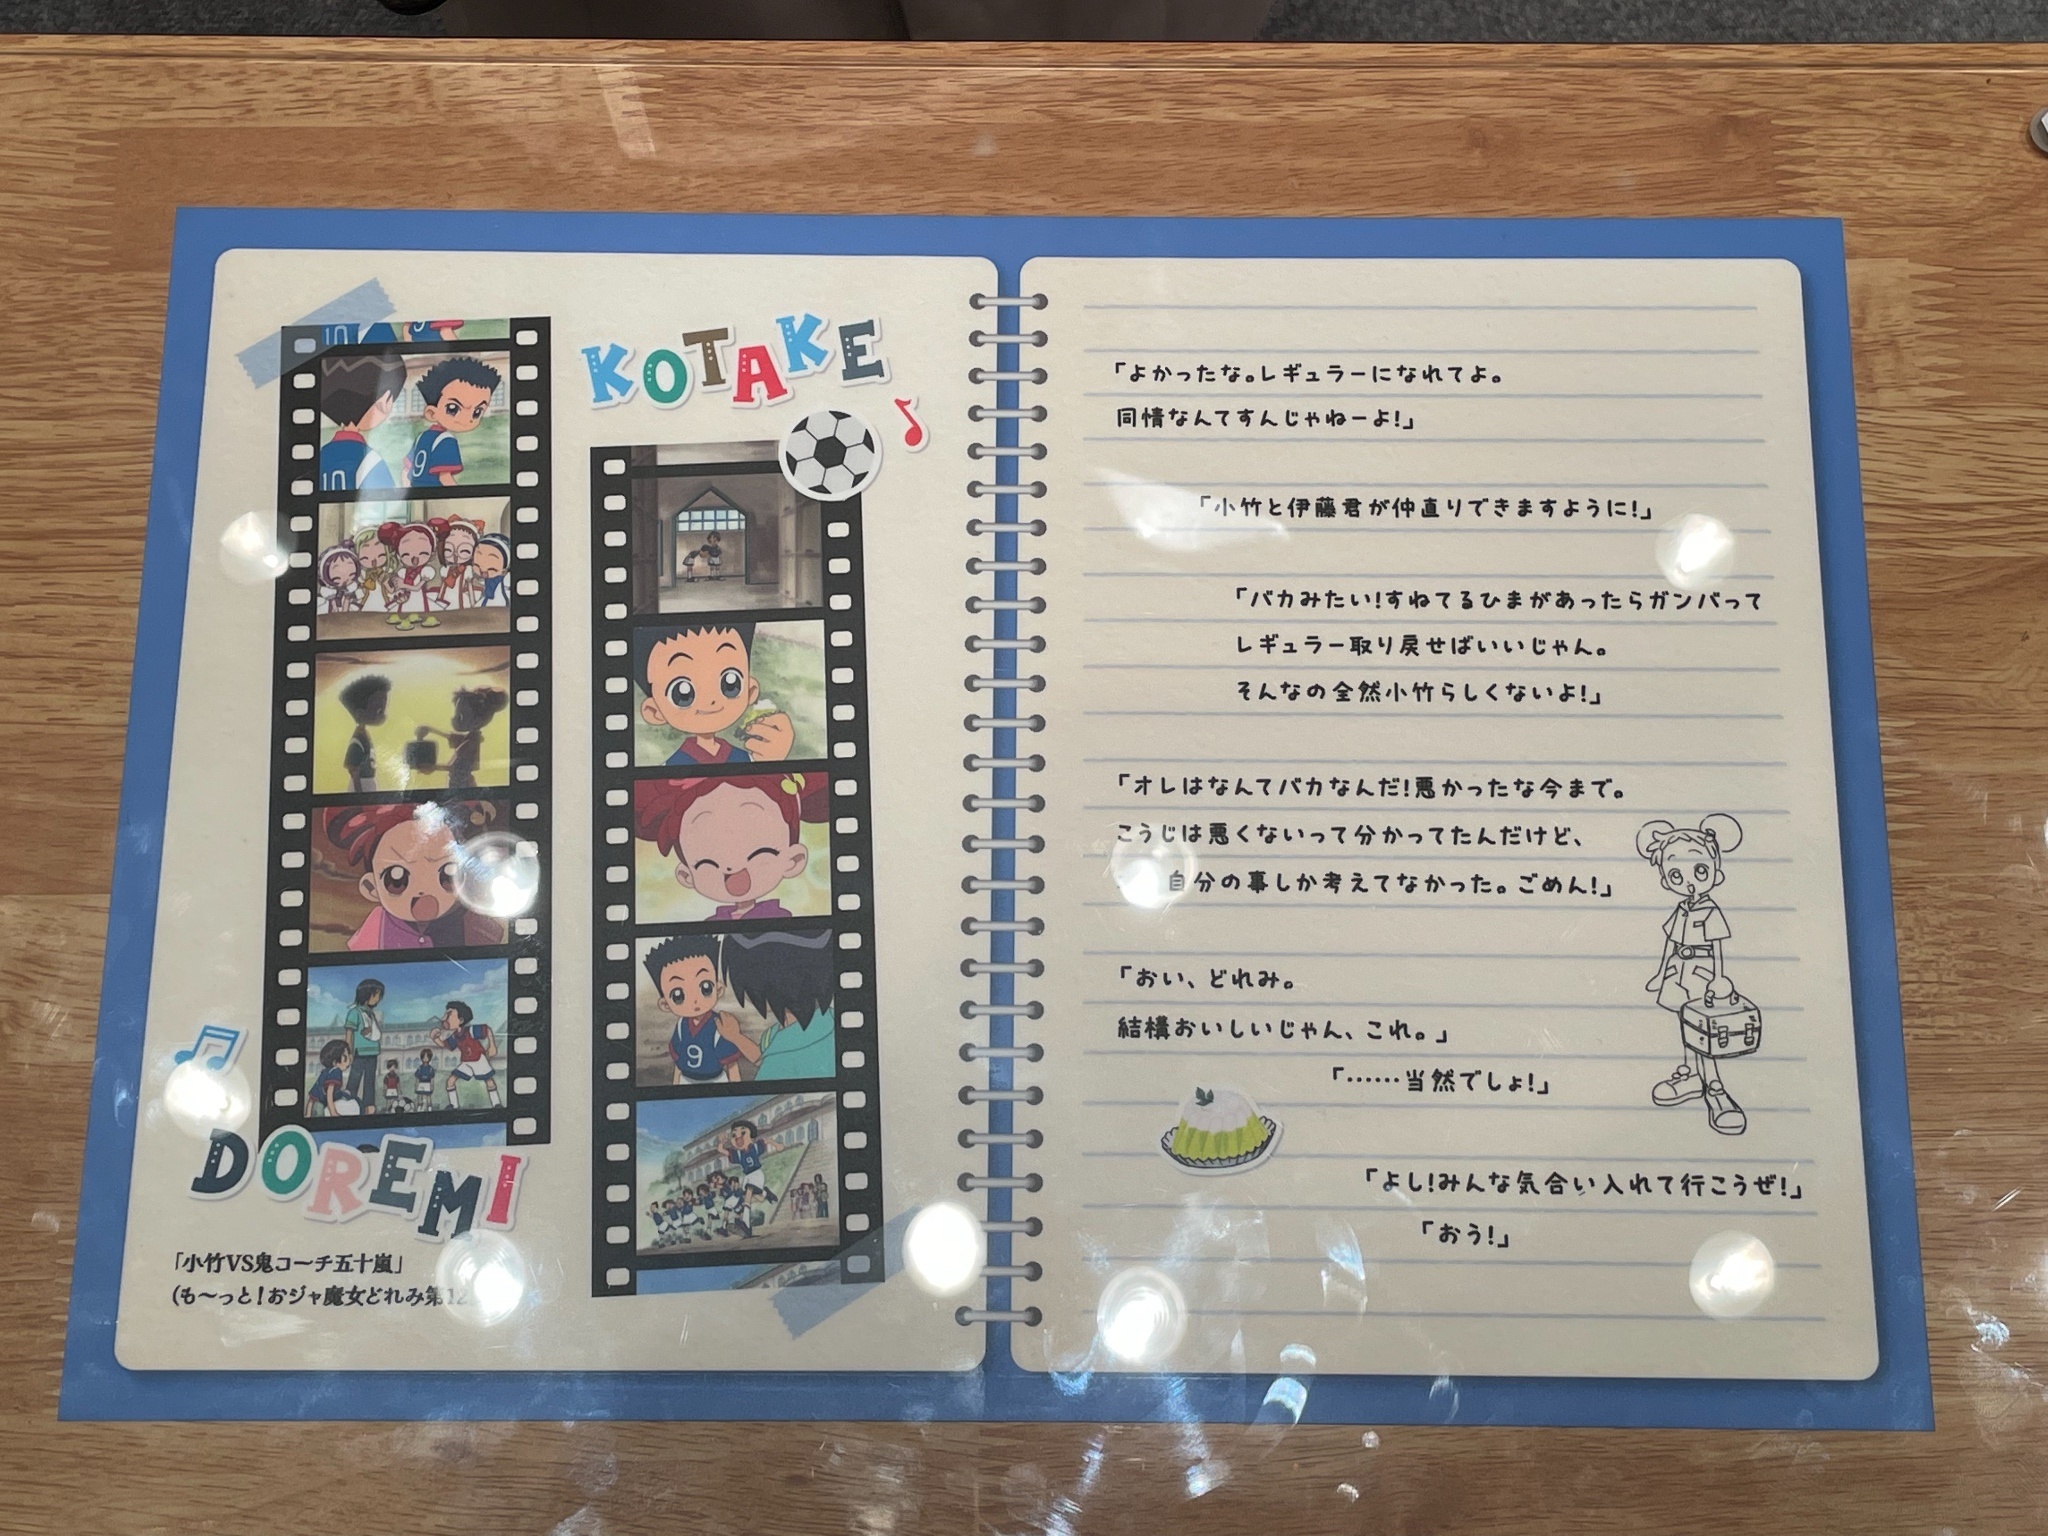 KOTAKE
10
9
10
9
9
9
DOREMI
「小竹VS鬼コーチ五十嵐」
(も～っと!おジャ魔女どれみ第12
「よかったな。レギュラーになれてよ。
同情なんてすんじゃねーよ!」
「小竹と伊藤君が仲直りできますように!」
「バカみたい!すねてるひまがあったらガンバって
レギュラー取り戻せばいいじゃん。
そんなの全然小竹らしくないよ!」
「オレはなんてバカなんだ!悪かったな今まで。
こうじは悪くないって分かってたんだけど、
自分の事しか考えてなかった。ごめん!」
「おい、どれみ。
結構おいしいじゃん、これ。」
「……当然でしょ!」
「よし!みんな気合い入れて行こうぜ!」
「おう!」